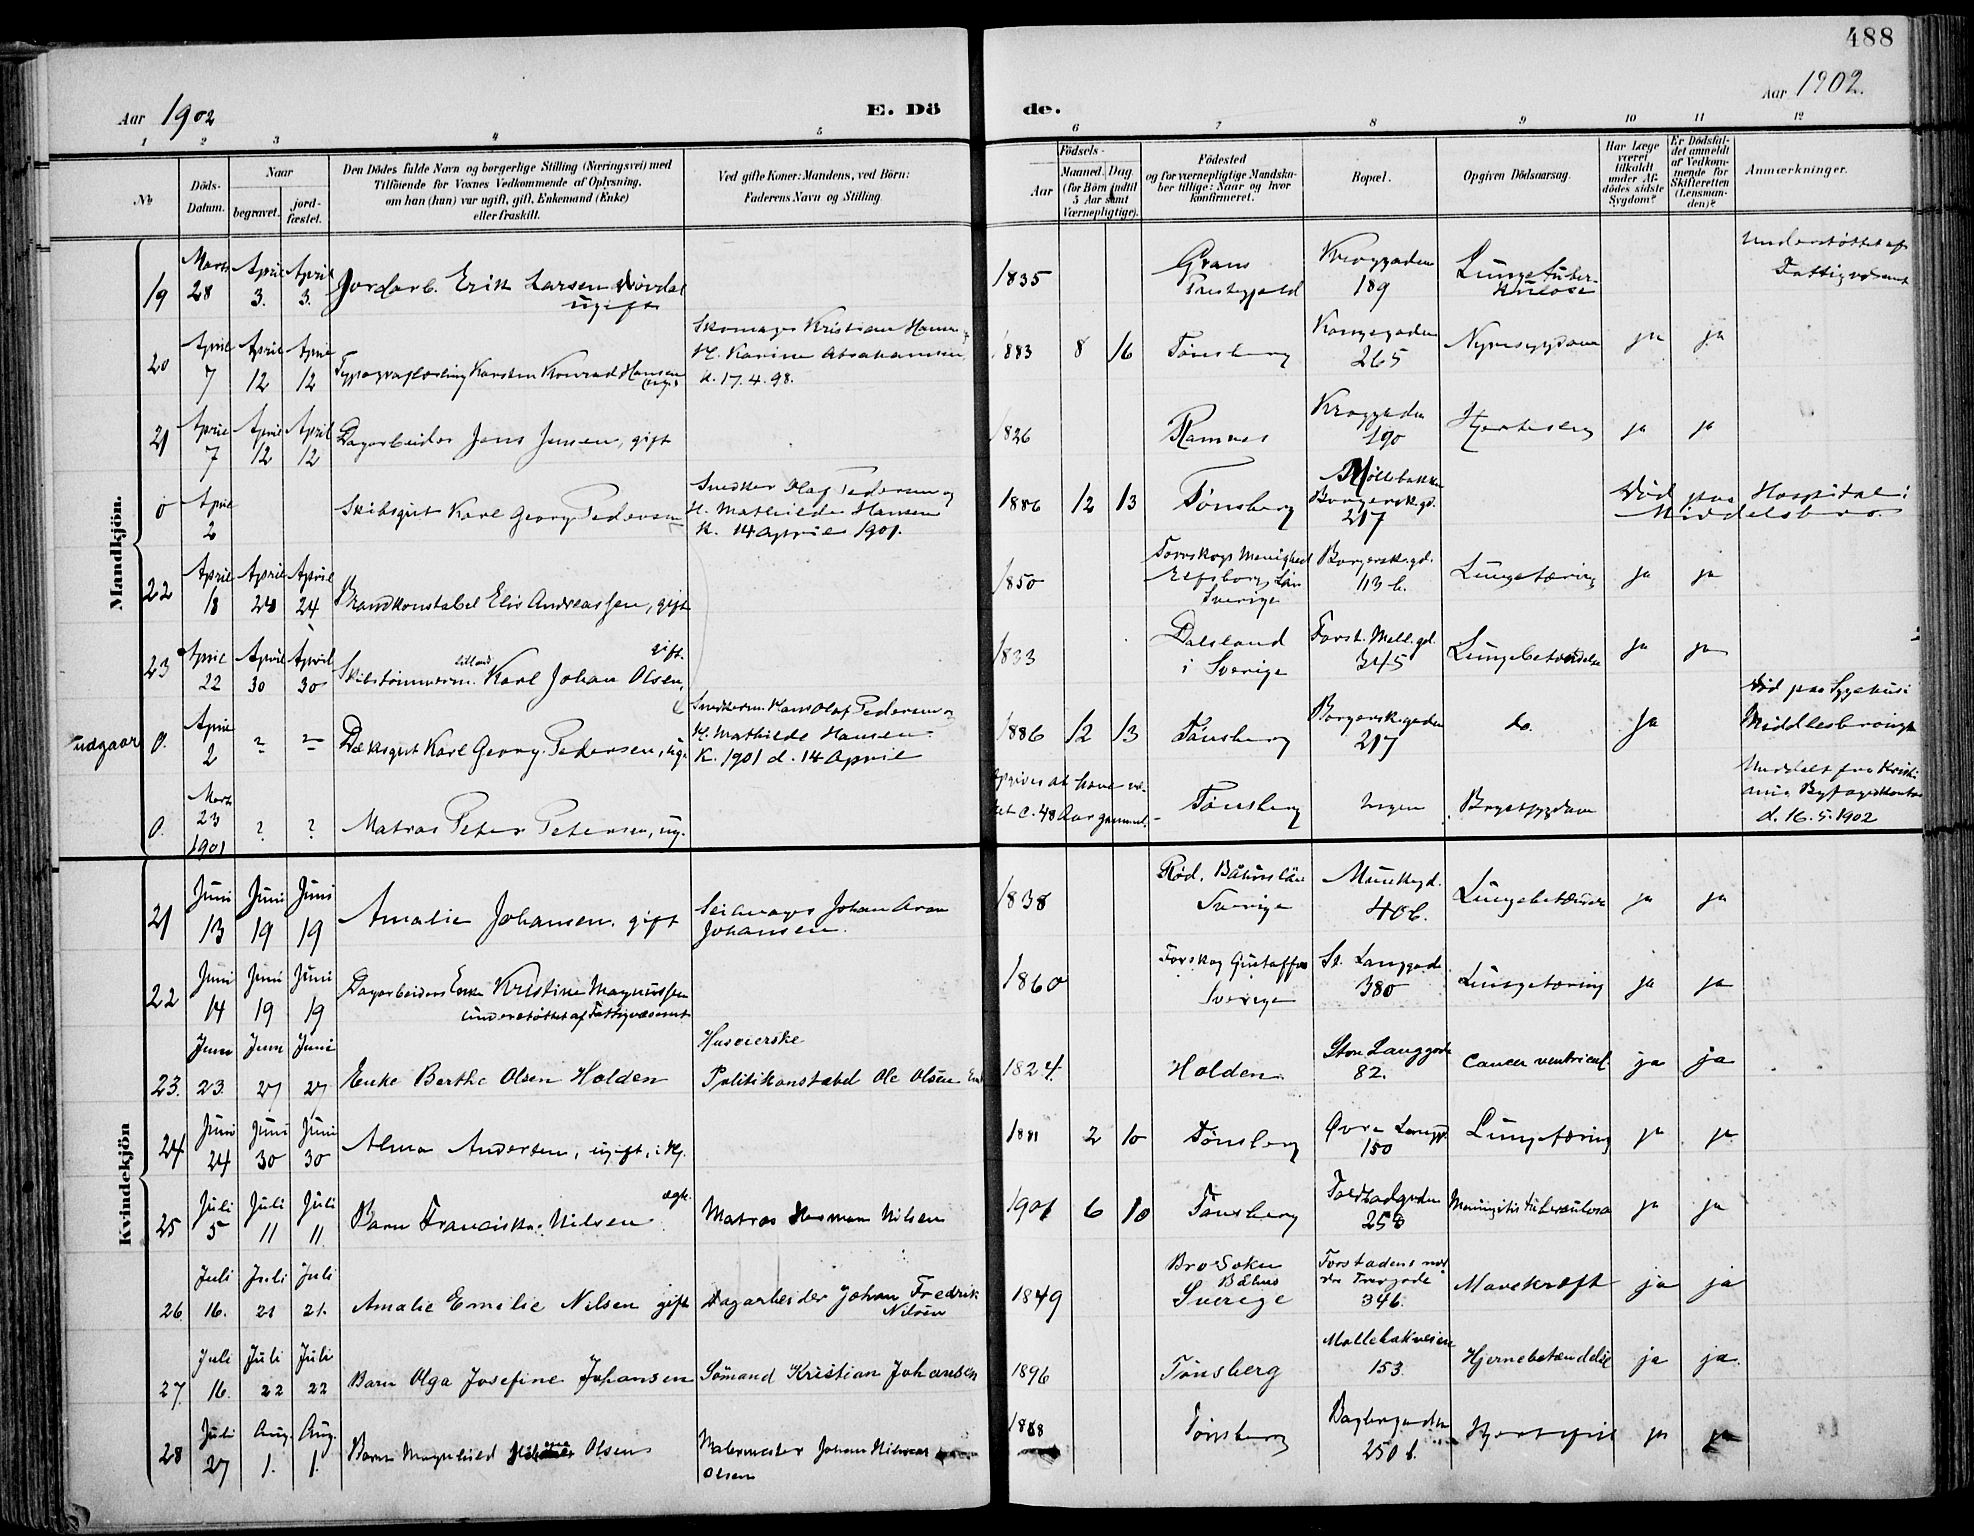 488
Aar 1902
E. Dö
de.
Aar 1902.
1 2 3 4 5 6 7 8 9 10 11 12
No
Döds-
Datum.
Naar
begravet.
jord-
fæstet.
Den Dödes fulde Navn og borgerlige Stilling (Næringsvei) med
Tilföiende for Voxnes Vedkommende af Oplysning,
om han (hun) var ugift, gift, Enkemand (Enke)
eller fraskilt.
Ved gifte Koner: Mandens, ved Börn:
Faderens Navn og Stilling.
Födsels-
Aar
Maaned. Dag.
(for Börn indtil
5 Aar samt
Værnepligtige).
Födested
og for værnepligtige Mandska-
ber tillige: Naar og hvor
konfirmeret.
Bopæl.
Opgiven Dödsaarsag.
Har Læge
været
tilkaldt
under Af-
dödes sidste
Sygdom?
Er Dödsfal-
det anmeldt
af Vedkom-
mende for
Skifteretten
(Lensman-
den)?
Anmærkninger.
Mandkjön.
19 Marts 28 April 3. April 3. Jordarb. Erik Larsen
ugift
1835 Grans
Præstegjeld
189 Lungetuber-
kulose
Understøttet af
Fattigvæsenet
20 April 7 April 12 April 12 Typograflærling Karsten Konrad Hansen
Skomager Kristian Hansen
H. Karine Abrahamsen
K. 17.4.98.
1883 8 16 Tønsberg Kongegaden
265 Nyresygdom ja ja
21 April 7 April 12 April 12 Dagarbeider Jens Jensen, gift
1826 Ramnes
190 ja ja
0 April 2 Skibsgut Karl Georg Pedersen
Snedker Olaf Pedersen og
H. Mathilde Hansen
K. 14 April 1901.
1886 12 13 Tønsberg Møllebakken
217
Død paa Hospital i
Middelsbro.
22 April 18 April 24 April 24 Brandkonstabel Elis Andreassen, gift
1850 Menighed
Elfsborgs Län
Sverige
113 b. Lungetæring ja ja
23 April 22 April 30 April 30 Karl Johan Olsen, gift.
1833 Dalsland
i Sverige
345 Lungebetændelse ja ja
udgaar 0. April 2 ? ? Dæksgut Karl Georg Pedersen, ug.
Snedkerm. Hans Olaf Pedersen og
H. Mathilde Hansen
K. 1901 d. 14 April
1886 12 13 Tønsberg
217 do. ja
Død paa Sygehus i
Middlesbrough
0. Marts 23 1901 ? ? Matros Peter Petersen, ug.
Opgives at have væ-
ret c. 48 Aar gammel.
Tønsberg Ingen Brystsygdom
Meddelt fra Kristi-
ania Byfogedkontor
d. 16.5.1902
Kvindekjön
21 Juni 13 Juni 19 Juni 19 Amalie Johansen, gift
Johan Aron
Johansen.
1838 Rød, Båhuslän
Sverige
40 b. Lungebetændelse ja ja
22 Juni 14 Juni 19 Juni 19 Dagarbeiders Enke Kristine Magnussen
understøttet af Fattigvæsenet
1860
Sverige
St. Langgade
380 Lungetæring ja ja
Husvierske
23. Juni 23. Juni 27 Juni 27 Enke Berthe Olsen Holden
Politikonstabel Ole Olsen
1824. Holden. Store Langgade
82. Cancer ventriculi ja ja
24 Juni 24 Juni 30 Juni 30 Alma Andersen, ugift,
1881 2 10 Tønsberg Øvre Langg.
150 Lungetæring ja ja
25 Juli 5 Juli 11 Juli 11. Barn Franciska Nilsen ægte.
Matros Herman Nilsen
1901 6 10 Tønsberg Toldbodgaden
258 Meningitis tuberculosa ja ja
26 Juli 16. Juli 21 Juli 21. Amalie Emilie Nilsen gift
Dagarbeider Johan Fredrik
Nilsen
1849 Bro Sokn
Båhus
Sverige
Forstadens
346. Mavekræft ja ja
27. Juli 16. Juli 22 Juli 22 Barn Olga Josefine Johansen
Sömand Kristian Johansen
1896 Tönsberg Møllebakveien
153. Hjernebetændelse ja ja.
28 Juli 27 Aug. 1. Aug. 1. Barn Magnhild Olsen
Malermester Johan Hilmar
Olsen
Tönsberg
250 b. Hjertefeil ja ja